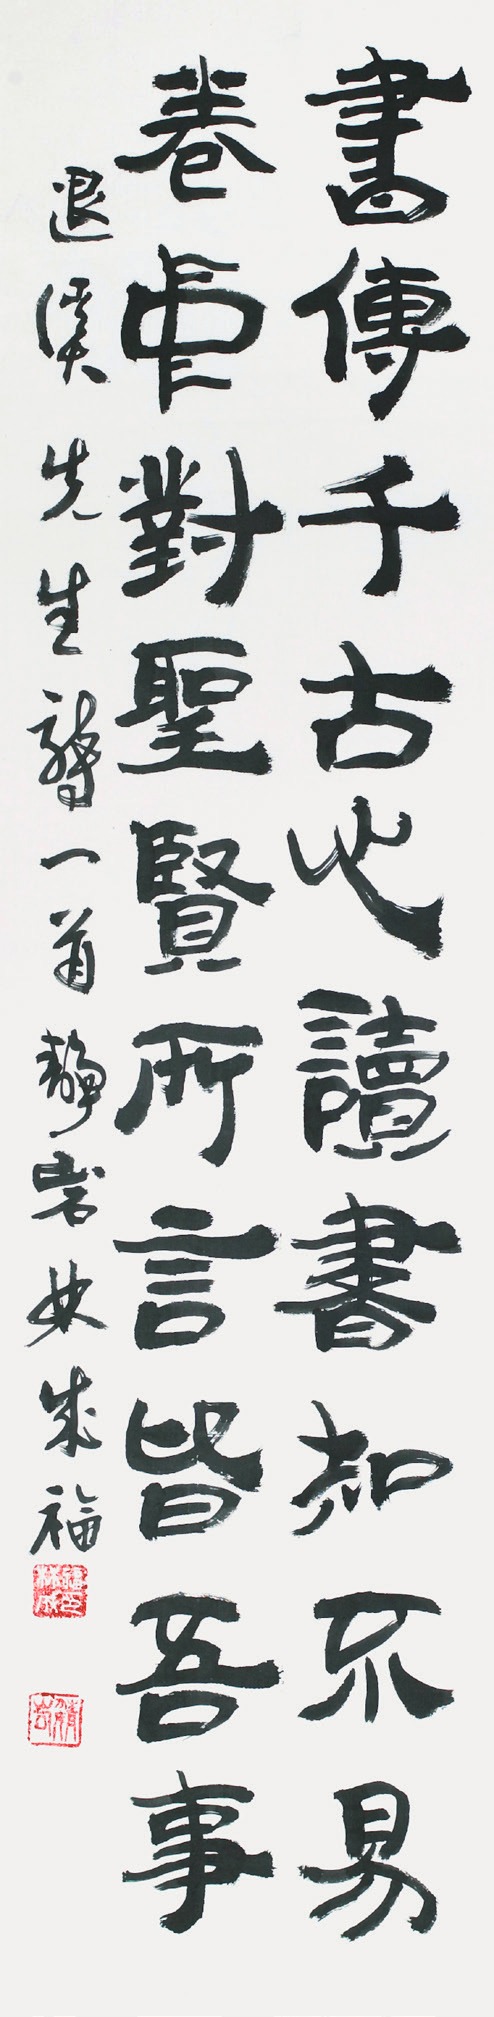 書傳千古心讀書知不易
卷中對聖賢所言皆吾事
退溪先生詩一首靜岩成福